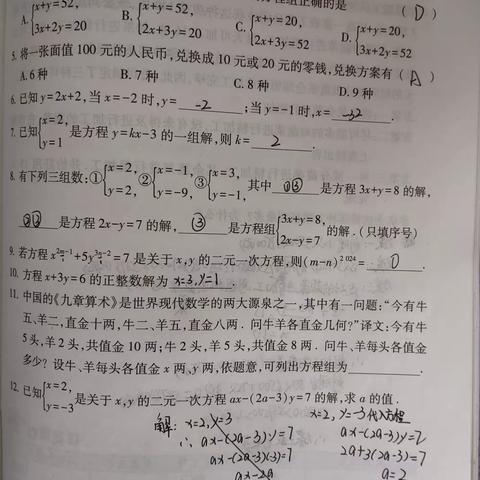 组正确的是 ( D )
A. {x+y=52, 3x+2y=20 B. {x+y=52, 2x+3y=20 C. {x+y=20, 2x+3y=52 D. {x+y=20, 3x+2y=52
5. 将一张面值 100 元的人民币,兑换成 10 元或 20 元的零钱,兑换方案有 ( A )
A. 6 种 B. 7 种 C. 8 种 D. 9 种
6. 已知 y=2x+2,当 x=-2 时,y= -2 ;当 y=-1 时,x= .
7. 已知{x=2, y=1 是方程 y=kx-3 的一组解,则 k= 2 .
8. 有下列三组数:①{x=2, y=2, ②{x=-1, y=-9, ③{x=3, y=-1, 其中 ①③ 是方程 3x+y=8 的解,
②③ 是方程 2x-y=7 的解, ③ 是方程组{3x+y=8, 2x-y=7 的解.(只填序号)
9. 若方程 x²ᵐ⁻¹+5y³ⁿ⁻²=7 是关于 x,y 的二元一次方程,则(m-n)²⁰²⁴= 0 .
10. 方程 x+3y=6 的正整数解为 x=3,y=1 .
11. 中国的《九章算术》是世界现代数学的两大源泉之一,其中有一问题:“今有牛
五、羊二,直金十两,牛二、羊五,直金八两.问牛羊各直金几何?”译文:今有牛
5 头,羊 2 头,共值金 10 两;牛 2 头,羊 5 头,共值金 8 两.问牛、羊每头各值金
多少?设牛、羊每头各值金 x 两、y 两,依题意,可列出方程组为
12. 已知{x=2, y=-3 是关于 x,y 的二元一次方程 ax-(2a-3)y=7 的解,求 a 的值.
解: x=2,y=3
∴ ax-(2a-3)y=7
ax-(2a-3)(-3)=7
ax-2a
x=2, y=-3代入方程
ax-(2a-3)y=7
2a+3(2a-3)=7
a=2